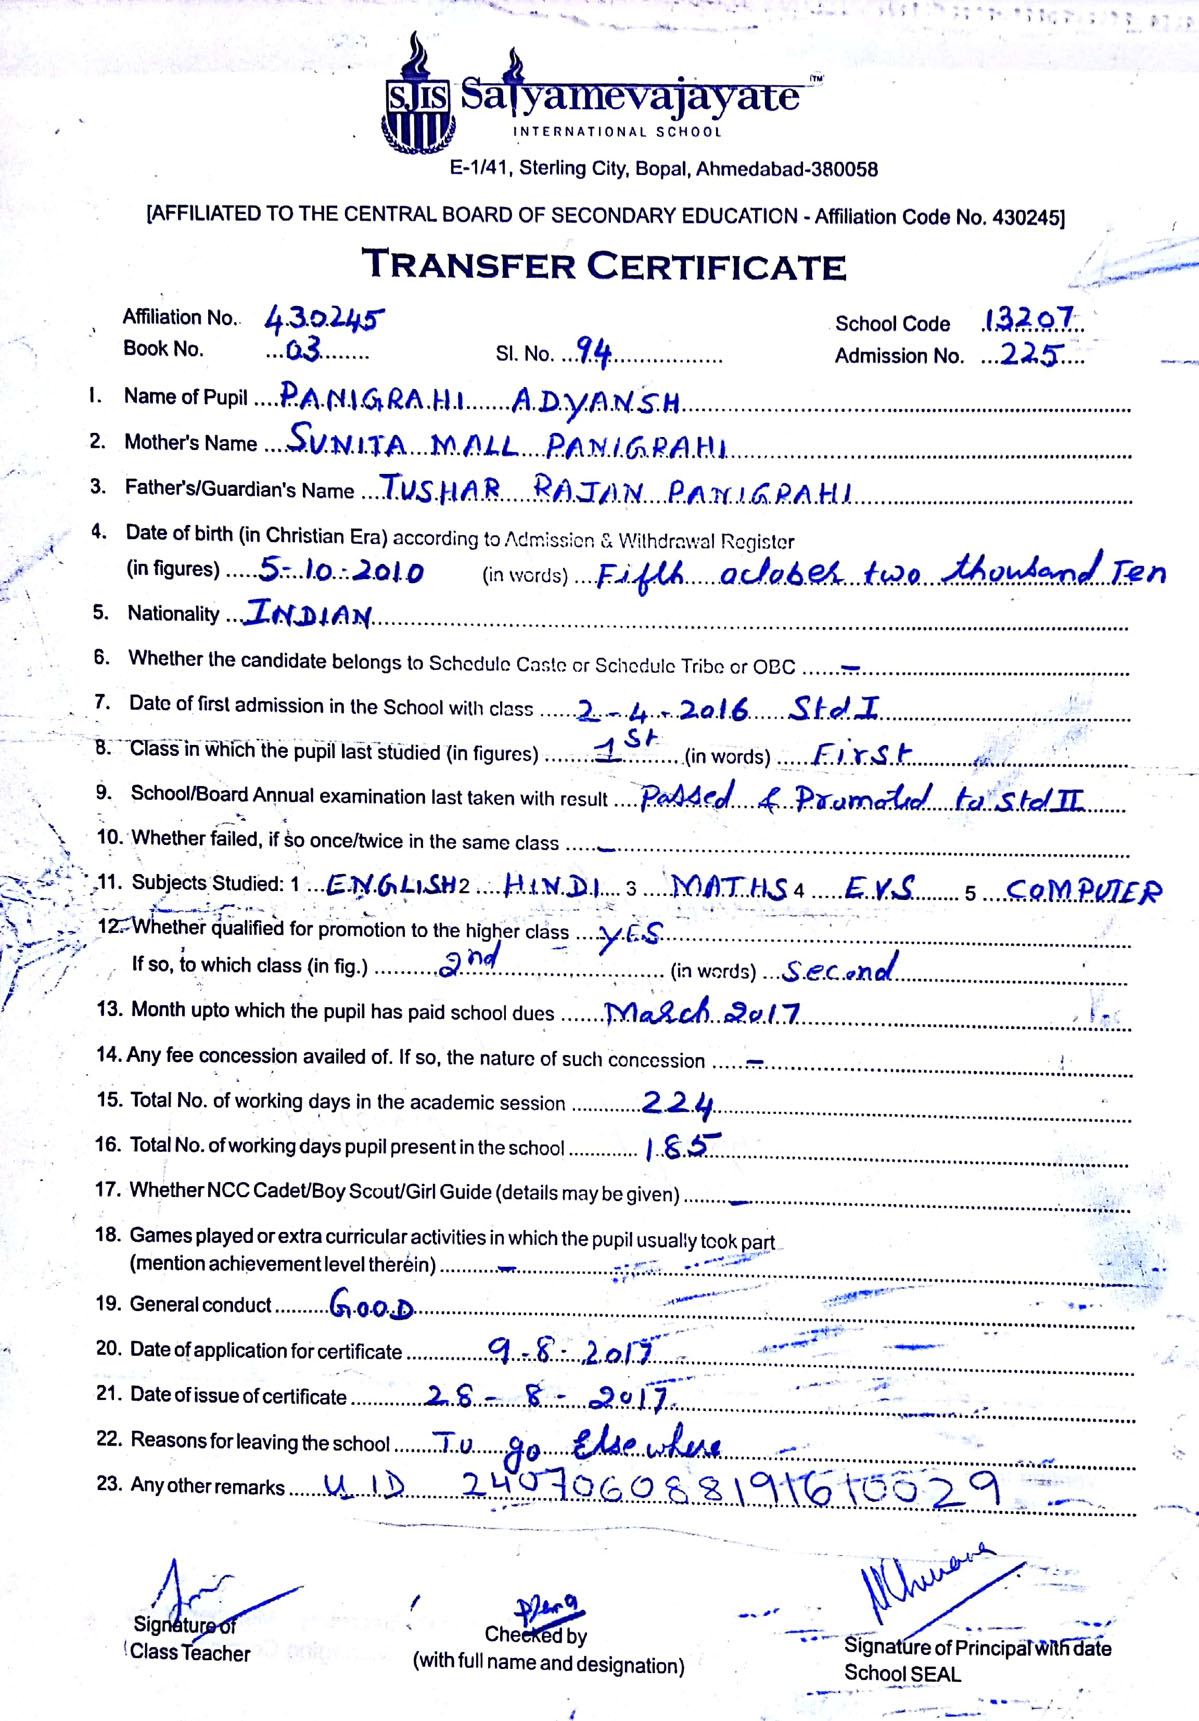 SJIS Satyamevajayate TM
INTERNATIONAL SCHOOL
E-1/41, Sterling City, Bopal, Ahmedabad-380058
[AFFILIATED TO THE CENTRAL BOARD OF SECONDARY EDUCATION - Affiliation Code No. 430245]
TRANSFER CERTIFICATE
Affiliation No. 430245 School Code 13207
Book No. 03 Sl. No. 94 Admission No. 225
1. Name of Pupil PANIGRAHI ADYANSH
2. Mother's Name SUNITA MALL PANIGRAHI
3. Father's/Guardian's Name TUSHAR RAJAN PANIGRAHI
4. Date of birth (in Christian Era) according to Admission & Withdrawal Register
(in figures) 5-10-2010 (in words) Fifth october two thousand Ten
5. Nationality INDIAN
6. Whether the candidate belongs to Schedule Caste or Schedule Tribe or OBC -
7. Date of first admission in the School with class 2-4-2016 Std I
8. Class in which the pupil last studied (in figures) 1st (in words) First
9. School/Board Annual examination last taken with result Passed & Promoted to Std II
10. Whether failed, if so once/twice in the same class -
11. Subjects Studied: 1 ENGLISH 2 HINDI 3 MATHS 4 E.V.S 5 COMPUTER
12. Whether qualified for promotion to the higher class YES
If so, to which class (in fig.) 2nd (in words) Second
13. Month upto which the pupil has paid school dues March 2017
14. Any fee concession availed of. If so, the nature of such concession -
15. Total No. of working days in the academic session 224
16. Total No. of working days pupil present in the school 185
17. Whether NCC Cadet/Boy Scout/Girl Guide (details may be given) -
18. Games played or extra curricular activities in which the pupil usually took part
(mention achievement level therein) -
19. General conduct GOOD
20. Date of application for certificate 9-8-2017
21. Date of issue of certificate 28-8-2017
22. Reasons for leaving the school To go Elsewhere
23. Any other remarks U ID 240706088191610029
Signature of
Class Teacher
Checked by
(with full name and designation)
Signature of Principal with date
School SEAL